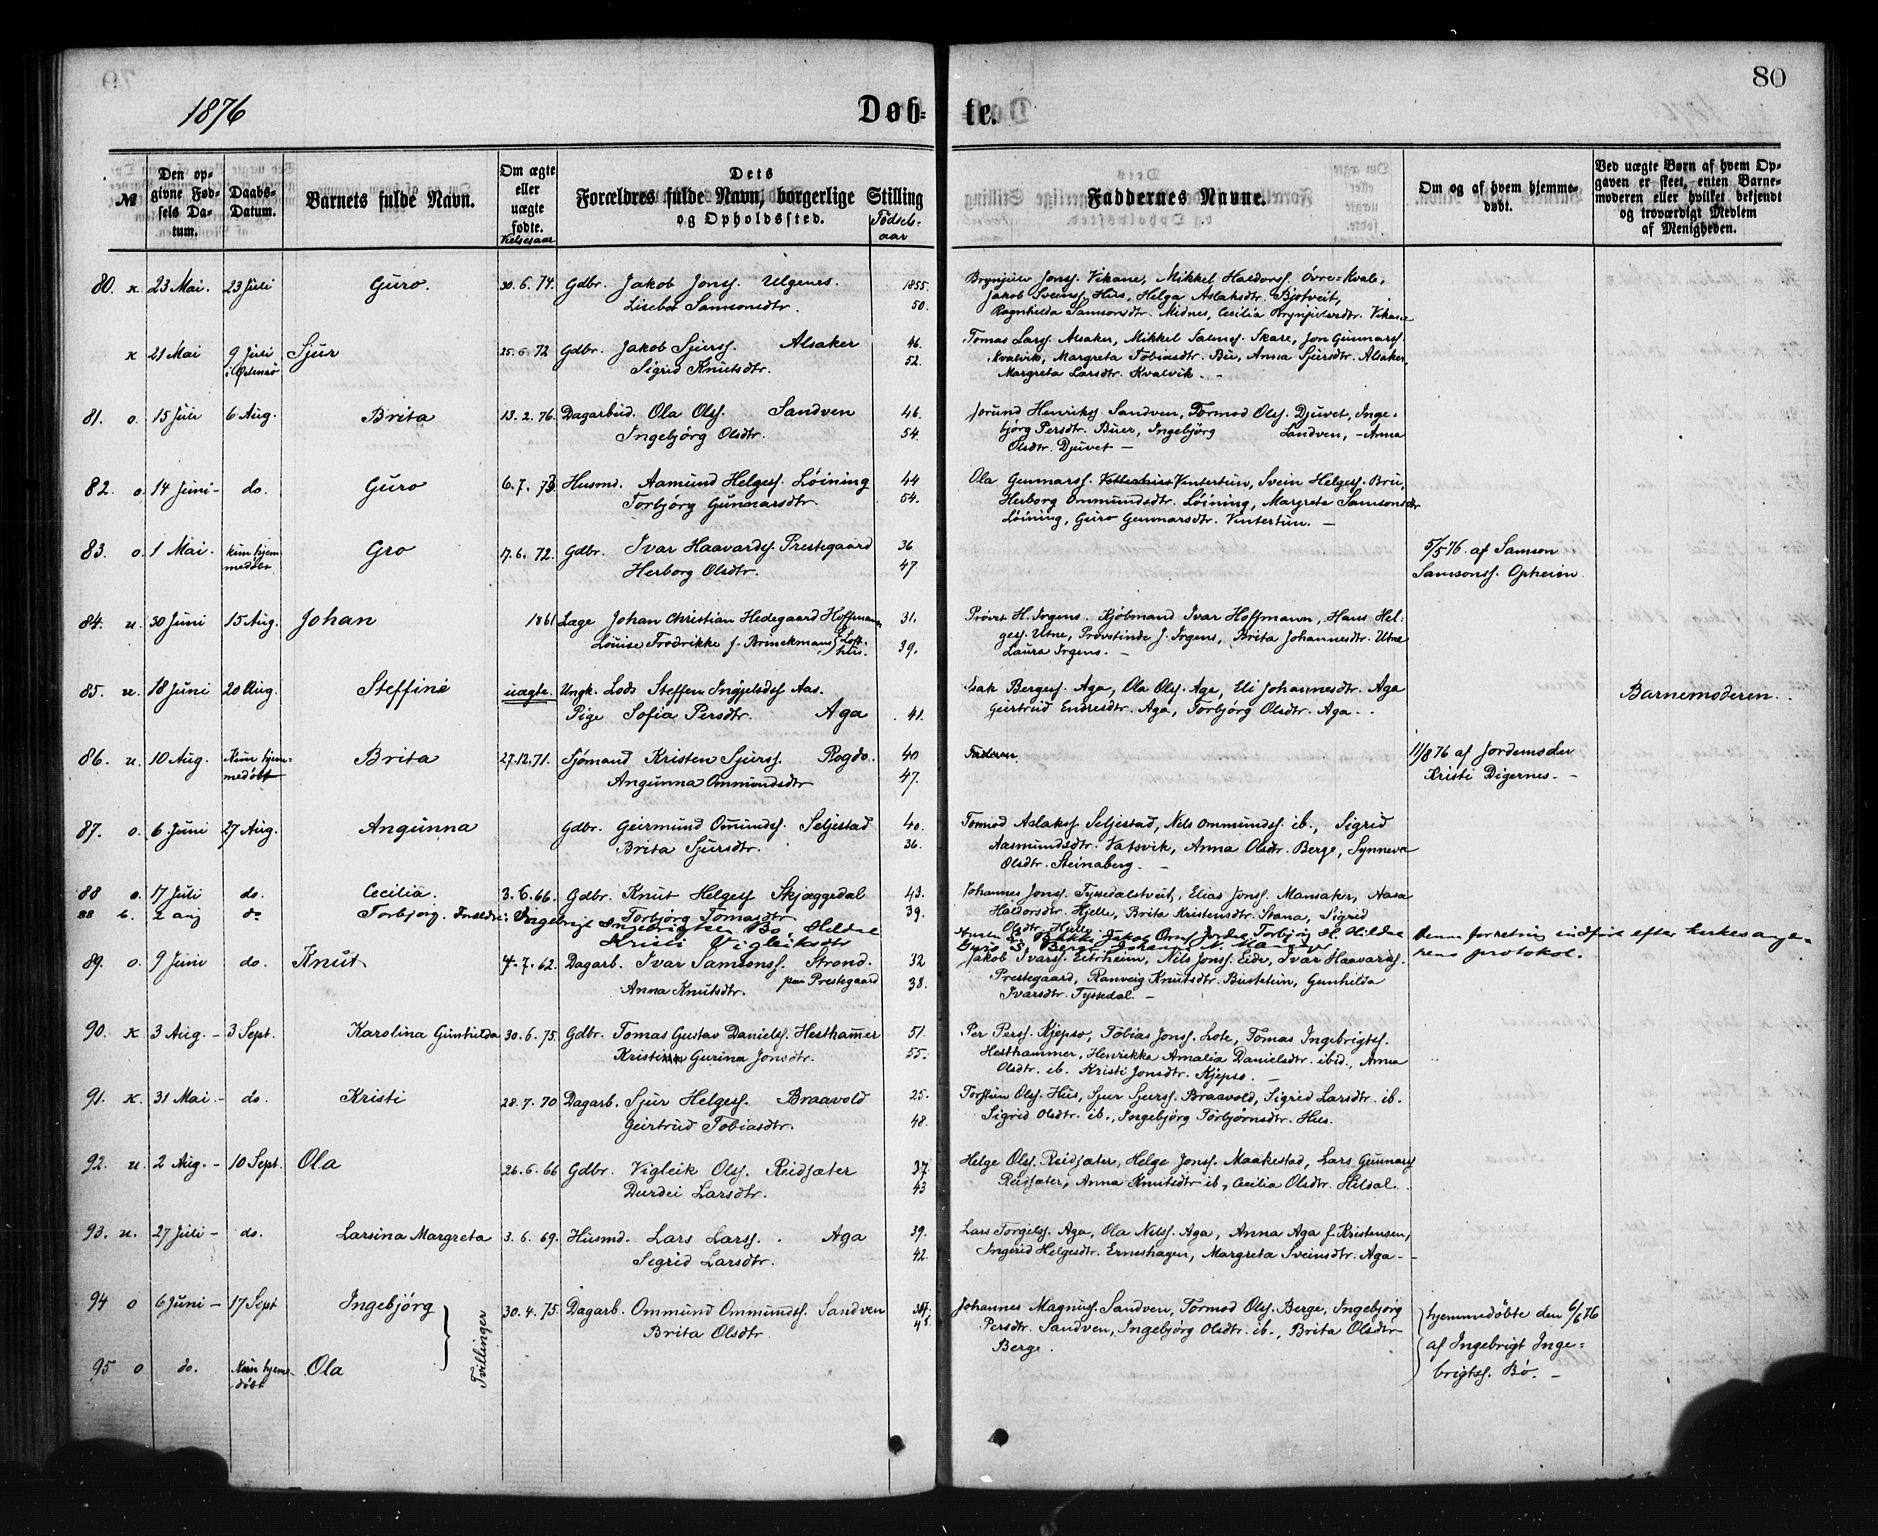 80
1876
Døb- te.
№ | Den opgivne Fødsels Datum. | Daabs-Datum. | Barnets fulde Navn. | Om ægte eller uægte fødte. Vielsesaar | Dets Forældres fulde Navn, borgerlige Stilling og Opholdssted. Fødselsaar | Faddernes Navne. | Om og af hvem hjemmedøbt. | Ved uægte Børn af hvem Opgaven er skeet, enten Barnemoderen eller hvilket bekjendt og troværdigt Medlem af Menigheden.
80. K 23 Mai. 23 Juli Guro. 30.6.74. Gdbr. Jakob Jonss. Ulgenes. 1855. Brynjulv Jonss. Vikane, Mikkel Haldorss. Øvre-Kvale,
Lisebet Samsonsdtr. 50. Jakob Sveinss. Hus, Helga Aslaksdtr. Bjotveit,
Ragnhilda Samsonsdtr. Midnes, Cecilia Brynjulvsdtr. Vikane
K 21 Mai 9 Juli Sjur 25.6.72 Gdbr. Jakob Sjurss. Alsaker 46. Tomas Larss. Alsaker, Mikkel Skare, Jon Gunnarss.
Sigrid Knutsdtr. 52. Kvalvik, Margreta Tobiasdtr. Bu, Anna Sjursdtr. Alsaker
Margreta Larsdtr. Kvalvik. -
81. o. 15 Juli 6 Aug. Brita 13.2.76. Dagarbeid. Ola Olss. Sandven 46. Jorund Henrikss. Sandven, Tormod Olss. Djuvet, Inge-
Ingebjörg Olsdtr. 54. björg Persdtr. Buer, Ingebjörg Sandven, - Anna
Olsdtr. Djuvet -
82. o. 14 Juni - do. Guro 6.7.73 Husmd. Aamund Helgess. Löining 44 Ola Gunnarss. Vintertun, Svein Helgess. Bru,
Torbjörg Gunnarsdtr. 54. Herborg Ommundsdtr. Löining, Margrete Samsonsdtr
Löining, Guro Gunnarsdtr. Vintertun. -
83. o. 1 Mai. kun hjem Gro 17.6.72. Gdbr. Ivar Haavardss. Prestegaard 36 5/5 76. af Samson
medøbt Herborg Olsdtr. 47 Samsonss. Opheim
84. u. 30 Juni 15 Aug. Johan 1861 Læge Johan Christian Hedegaard Hoffmann 31. Provst H. Irgens. Kjøbmand Ivar Hoffmann, Hans Hel-
Louise Fredrikke f. Brinckmann, Loft-hus. 39. gess. Utne, Provstinde J. Irgens, Brita Johannesdtr. Utne
Laura Irgens. -
85. u. 18 Juni 20 Aug. Steffine uægte. Ungk. Lods Steffen Aas. Isak Bergess. Aga, Ola Olss. Aga, Eli Johannesdtr. Aga Barnemoderen
Pige Sofia Persdtr. Aga 41. Geirtrud Endresdtr. Aga, Torbjörg Olsdtr. Aga
86. u. 10 Aug. Kun hjem- Brita 27.12.71. Sjømand Kristen Sjurss. Rogde. 40 Faderen. 11/8 76 af Jordemoder
medøbt Angunna Ommundsdtr 47. Kristi Digernes. -
87. o. 6 Juni 27 Aug. Angunna Gdbr. Geirmund Omundss. Seljestad 40. Tormod Aslakss. Seljestad, Nils Ommundss. ib., Sigrid
Brita Sjursdtr. 36. Aasmundsdtr. Vatsvik, Anna Olsdtr. Berge, Synneva
Olsdtr. Steinaberg. -
88 o. 17 Juli do. Cecilia. 3.6.66. Gdbr. Knut Helgess Skjæggedal 43. Johannes Jonss. Tyssedalstveit, Elias Jonss. Mansaker, Aasa
Torbjörg Tomasdtr 39. Haldorsdtr. Hjelle, Brita Kristensdtr. Stana, Sigrid
Olsdtr. Hjelle.
88 b. 2 aug do Torbjörg. Ingebrigt Ingebrigtsen Bø, Hildal
Kristi Vigleiksdtr
89. o 9 Juni do. Knut 4.7.62. Dagarb. Ivar Samsonss. Strond. 32 Jakob Ivarss. Eitrheim, Nils Jonss. Eide, Ivar Haavardss.
Anna Knutsdtr. paa Prestegaard 38. Prestegaard, Ranveig Knutsdtr. Bustetun, Gunhilda
Ivarsdtr. Tyssedal. -
90. K 3 Aug. - 3 Sept. Karolina Gunhilda 30.6.75. Gdbr. Tomas Gustav Danielss. Hesthammer 51. Per Perss. Kjepso, Tobias Jonss. Lote, Tomas Ingebrigtss.
Gurina Jonsdtr. 55. Hesthammer, Henrikka Amalia Danielsdtr. ibid., Anna
Olsdtr. ib. Kristi Jonsdtr. Kjepso. -
91. K. 31 Mai - do. Kristi 28.7.70 Dagarb. Sjur Helgess. Braavold 25. Torstein Olss. Hus, Sjur Sjurss. Braavold, Sigrid Larsdtr. ib.
Geirtrud Tobiasdtr. 48. Sigrid Olsdtr. ib., Ingebjörg Torbjørnsdtr. Hus.
92. u. 2 Aug. - 10 Sept. Ola 26.6.66 Gdbr. Vigleik Olss. Reidsæter 37. Helge Olss. Reidsæter, Helge Jonss. Maakestad, Lars Gunnarss
Durdei Larsdtr. 43 Reidsæter, Anna Knutsdtr ib, Cecilia Olsdtr. Hildal.
93. u. 27 Juli - do. Larsina Margreta 3.6.69. Husmd. Lars Larss. Aga 39. Lars Torgilss. Aga, Ola Nilss. Aga, Anna Aga f. Kristensen,
Sigrid Larsdtr. 42. Ingerid Helgesdtr. Erneshagen, Margreta Sveinsdtr. Aga -
94 o 6 Juni - 17 Sept Ingebjörg Tvillinger 30.4.75. Dagarb. Ommund Ommundss. Sandven Johannes Magnuss. Sandven, Tormod Olss. Berge, Ingebjörg hjemmedøbte den 6/6 76
Brita Olsdtr Persdtr. Sandven, Ingebjörg Olsdtr. ib., Brita Olsdtr af Ingebrigt Inge-
Berge. brigtss. Bø. -
95 o do. Kun hjemme-døbt Ola